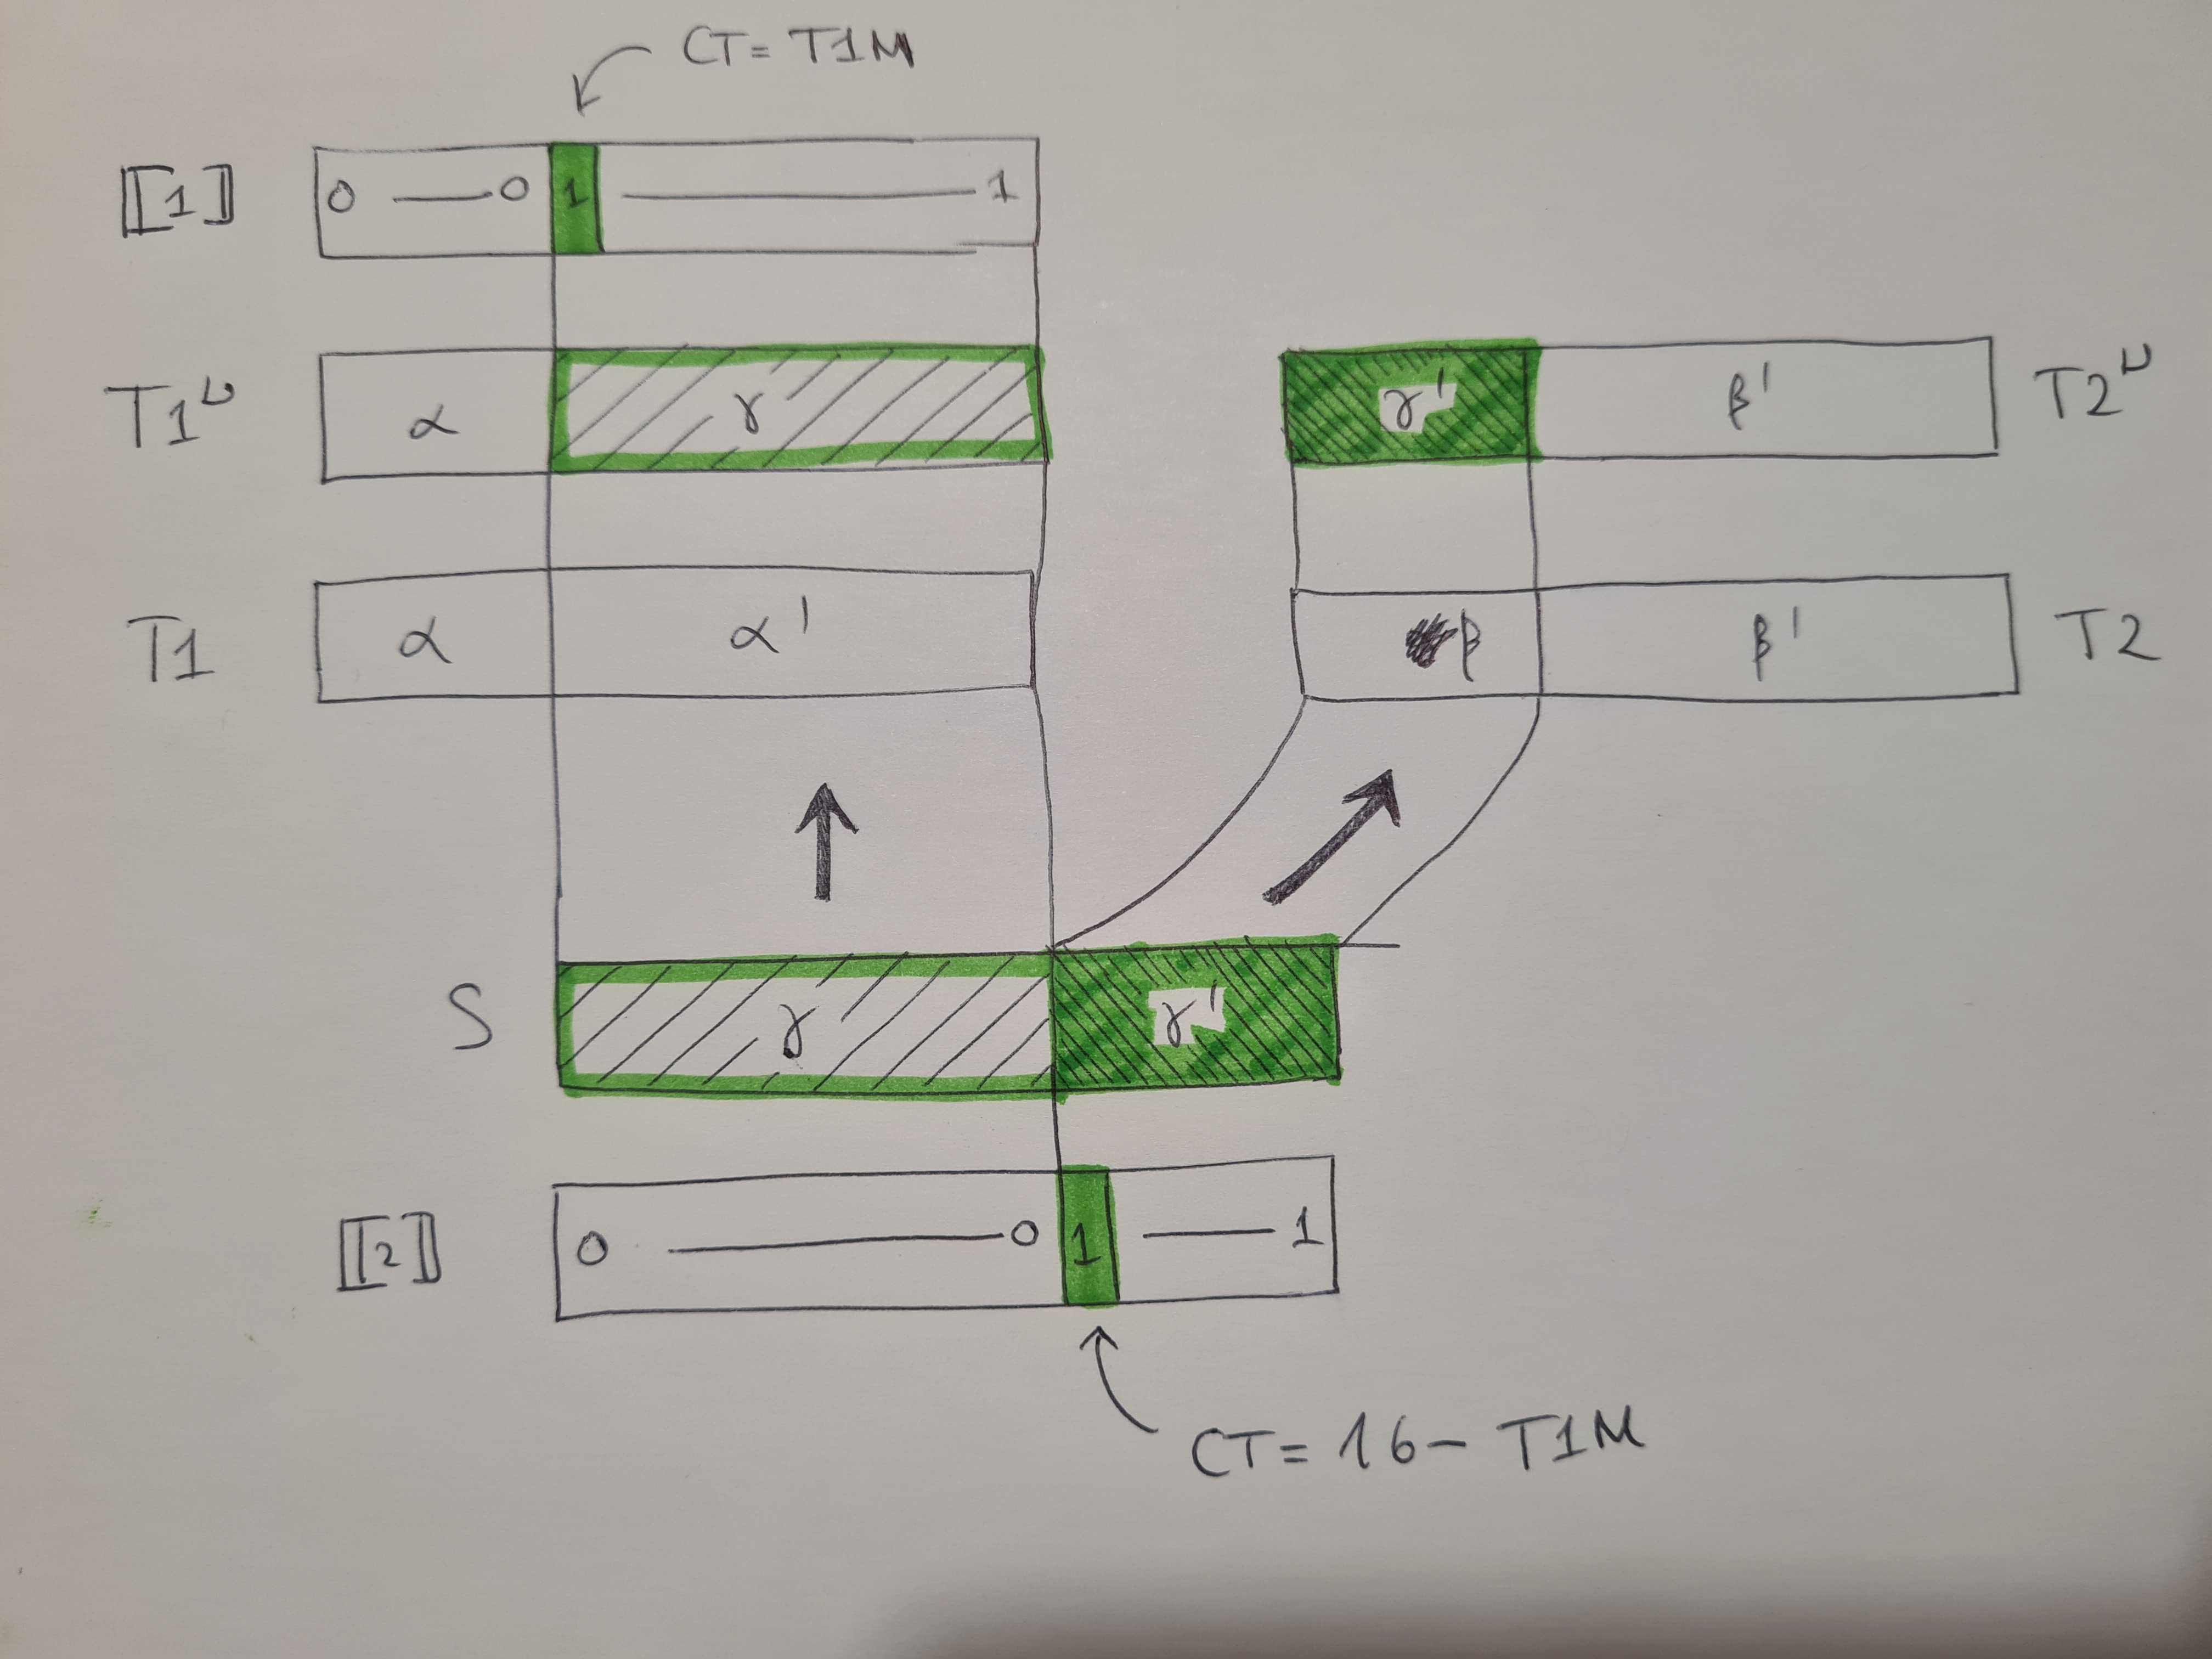 CT= T1M
[[1]] 0 — 0 1 — 1
T1ᴺ α γ γ' β' T2ᴺ
T1 α α' β β' T2
S γ γ'
[[2]] 0 — 0 1 — 1
CT= 16- T1M